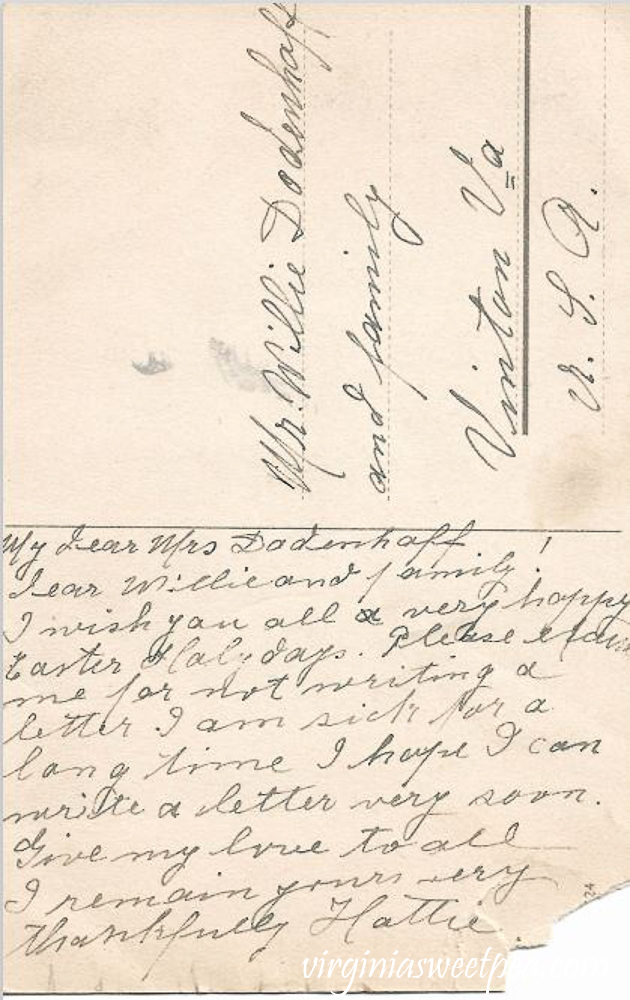 Mr. Willie Dodenhoff
and family
Vinton Va
U. S. A.
My Dear Mrs Dodenhoff !
Dear Willie and family!
I wish you all a very happy
Easter Holy days. Please
me for not writing a
letter I am sick for a
long time I hope I can
write a letter very soon.
Give my love to all
I remain yours very
thankfully Hattie.
24
virginiasweetpea.com